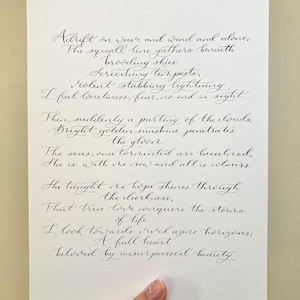 Adrift on wave and wind and alone,
The squall line gathers beneath
brooding skies
Screeching tempests,
violent stabbing lightning
I feel loneliness, fear, no end in sight
Then, suddenly a parting of the clouds,
Bright golden sunshine penetrates
the gloom
The seas, once tormented are becalmed,
She is with me now and all is colours.
She taught me hope shines through
the darkness,
That true love conquers the storms
of life
I look towards vivid azure horizons,
A full heart
beloved by unsurpassed beauty